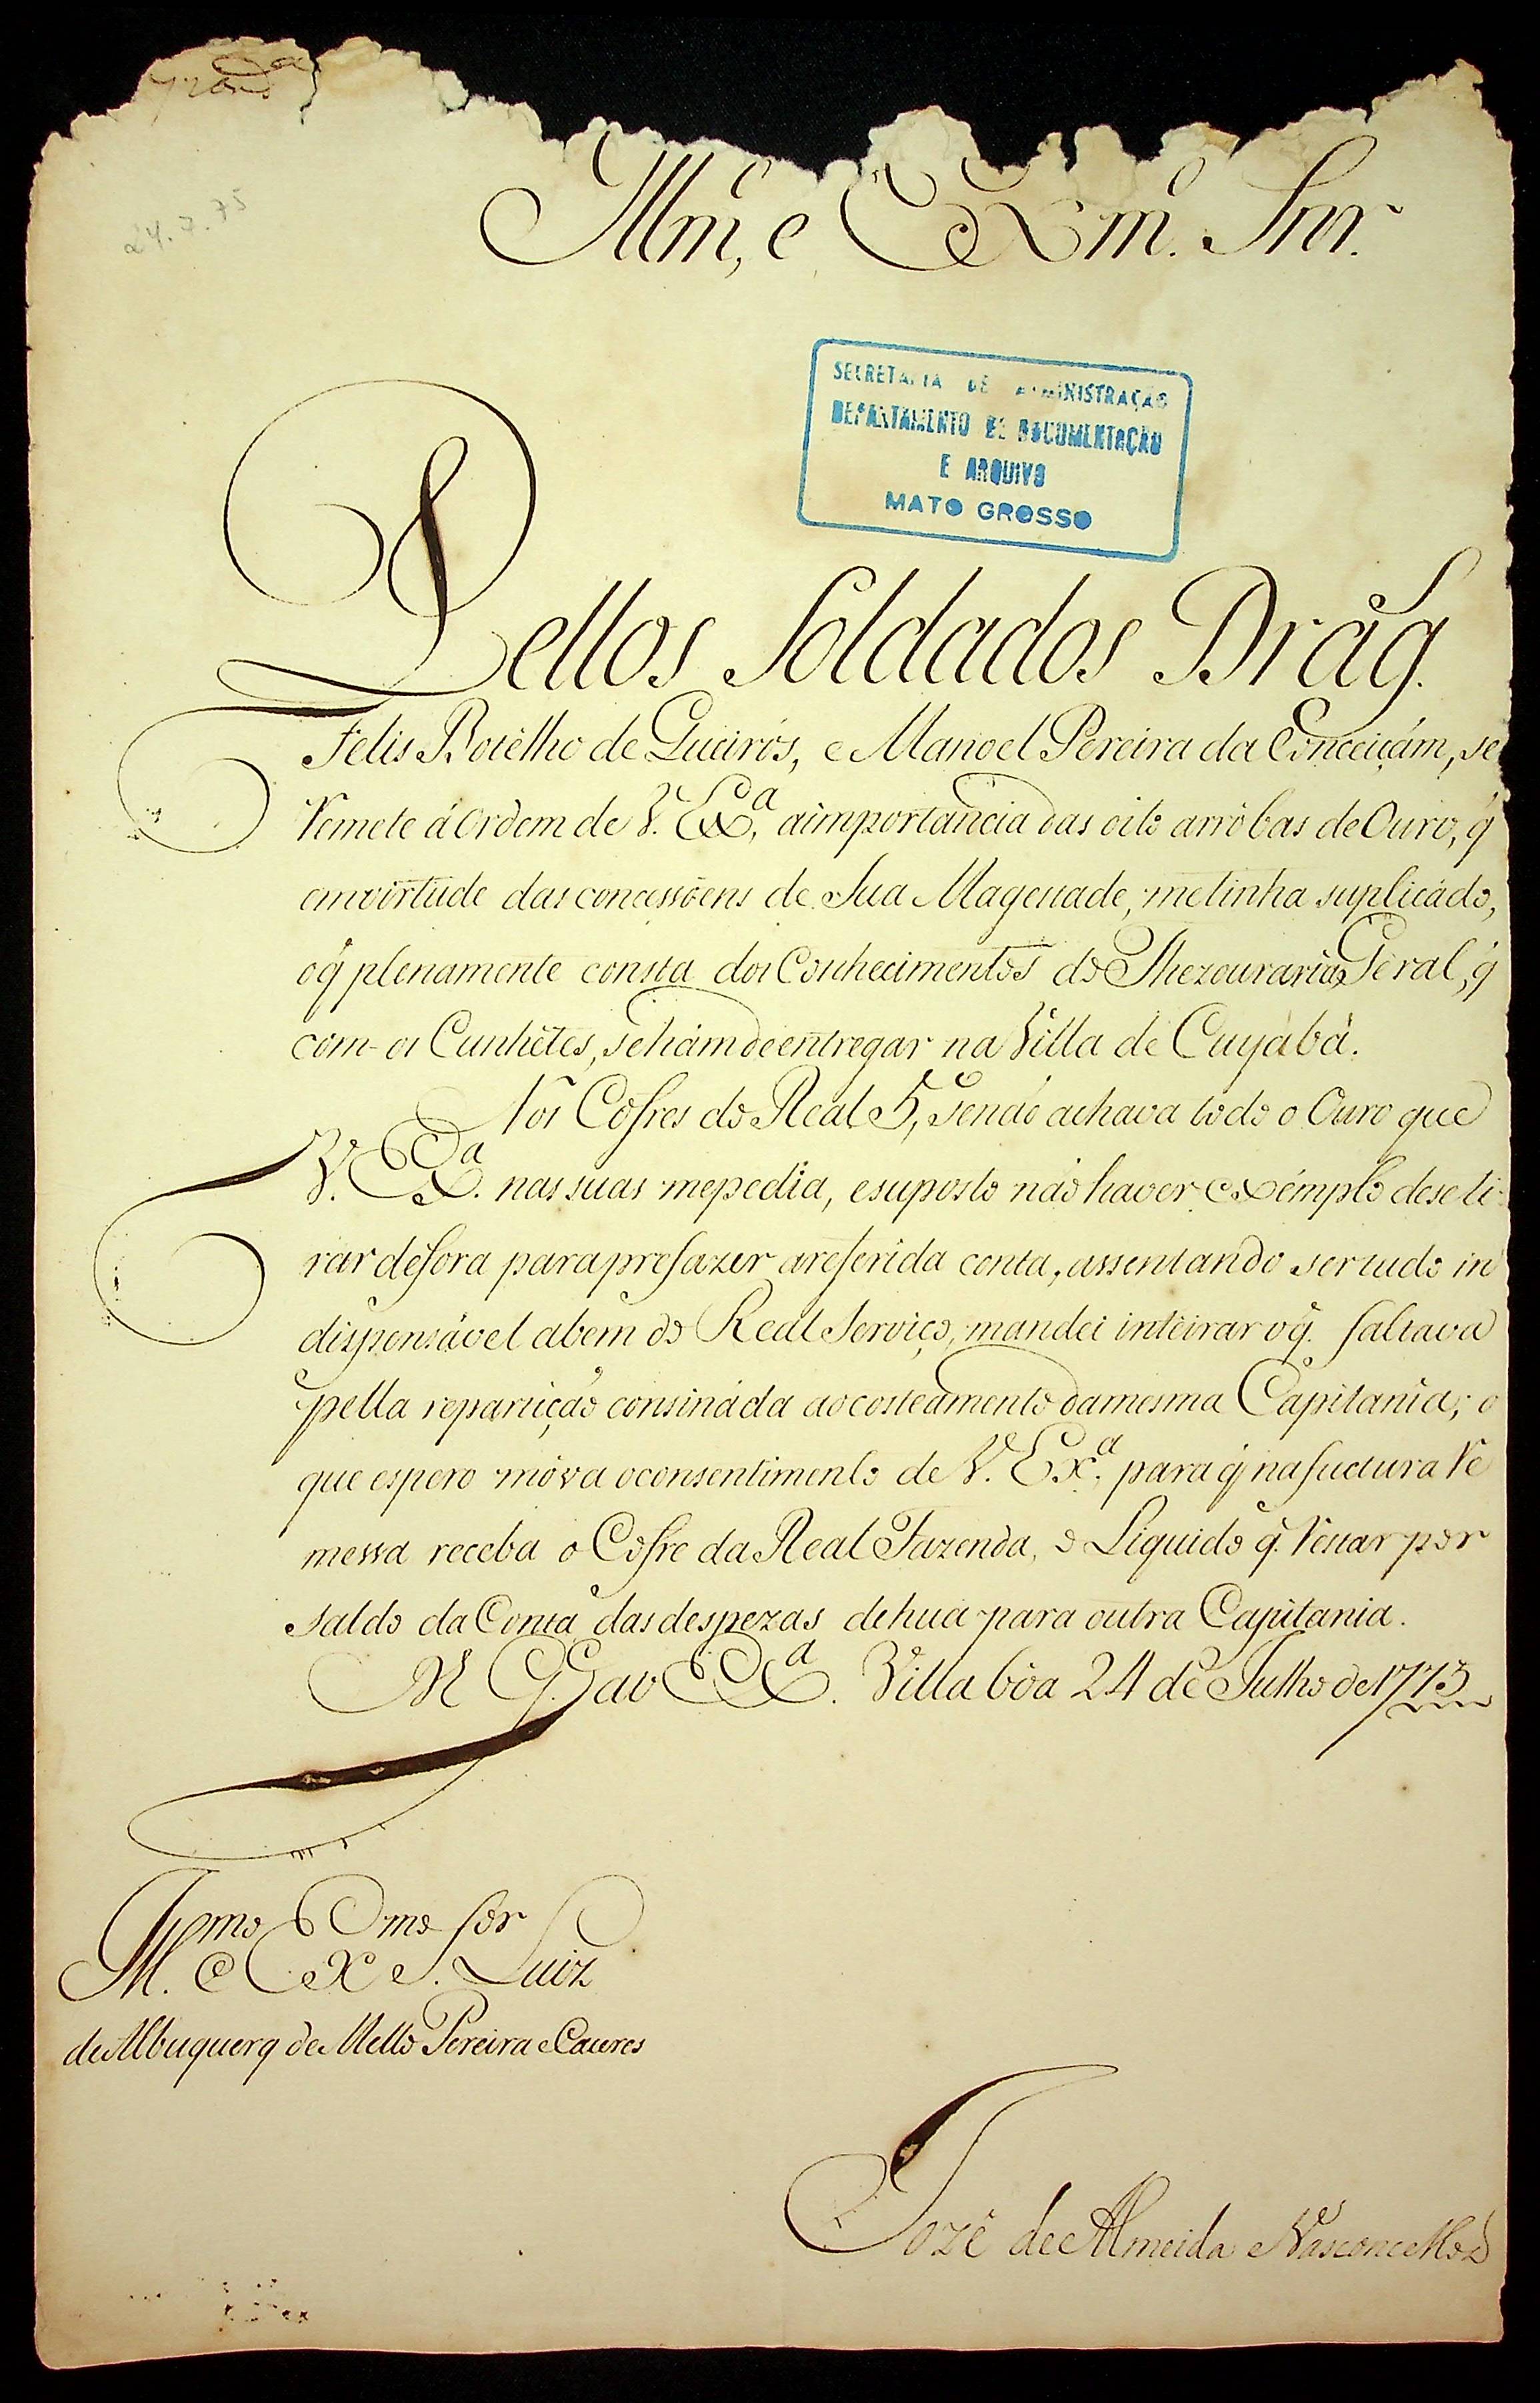 24.7.75
Illmº, e Exmº. Snr.
SECRETARIA DE ADMINISTRAÇÃO
DEPARTAMENTO DE DOCUMENTAÇÃO
E ARQUIVO
MATO GROSSO
Pellos Soldados Drag.ˢ
Felis Botêlho de Queirós, e Manoel Pereira da Conceiçám, se
remete á ordem de V. Exª, aimportancia das oito arrôbas de Ouro, q̃
emvirtude das concessõens de Sua Magestade, metinha suplicádo,
oq̃ plenamente consta dos Conhecimentos do Thezouraria Geral, q̃
com os Cunhêtes, sehám de entregar na Villa de Cuyabá.
Nos Cofres do Real 5º, senáo achava todo o Ouro que
V. Exª. nas suas mepedia, esuposto náo haver exémplo dese ti-
rar défora para prefazer areferida conta, assentando ser tudo in
dispensável abem do Real Serviço, mandei inteirar oq̃. faltava
pella repartiçáo consináda ao costeamento damesma Capitania; o
que espero môva oconsentimento de V. Exª. para q̃ nafuctura re
messa receba o Cofre da Real Fazenda, o Liquido q̃. restar por
saldo da Conta das despezas de hua para outra Capitania.
Dˢ Gᵉ a V Exª. Villa bôa 24 de Julho de 1775
Illmo e Exmo Sor Luiz
de Albuquerq de Mello Pereira e Caceres
Jozé de Almeida Vasconcellos